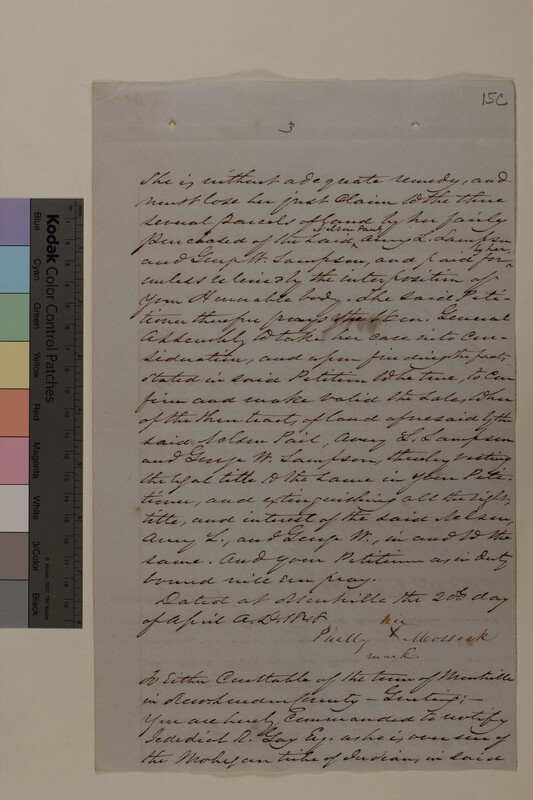 15C
3
She is without adequate remedy, and
must lose her just Claim to the three
several parcels of land by her fairly
purchased of the said, Nelson Paul, Avery L. Sampson
and George W. Sampson, and paid for, by her,
unless relieved by the interposition of
your Honorable body. The said Peti-
tioner therefore prays the Hon. General
Assembly to take her case into Con-
sideration, and upon finding the facts
stated in said Petition to be true, to Con
firm and make valid the Sale, to her
of the three tracts of land aforesaid by the
said Nelson Paul, Avery L. Sampson
and George W. Sampson, thereby vesting
the legal title to the same in your Peti-
tioner, and extinguishing all the right,
title, and interest of the said Nelson,
Avery L., and George W., in and to the
same. And your Petitioner as in duty
bound will ever pray.
Dated at Montville the 20th day
of April A.D. 1848.
her
X
mark
To Either Constable of the town of Montville
in New London County — Greeting; —
You are hereby Commanded to notify
Jedediah R. Gay Esq. as he is overseer of
the Mohegan tribe of Indians, in said
Kodak Color Control Patches
Blue
Cyan
Green
Yellow
Red
Magenta
White
3/Color
Black